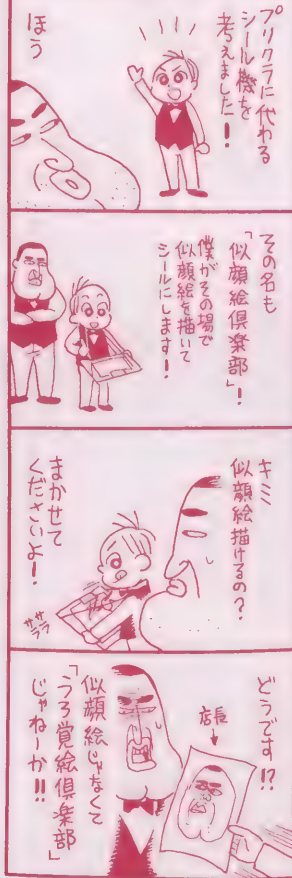 プリクラに代わる
シール機を
考えました!
ほう
その名も
「似顔絵倶楽部」!
僕がその場で
似顔絵を描いて
シールにします!
キミ
似顔絵描けるの?
まかせて
くださいよ!
サラ
サラ
どうです!?
店長
似顔絵じゃなくて
「うろ覚絵倶楽部」
じゃねーか!!